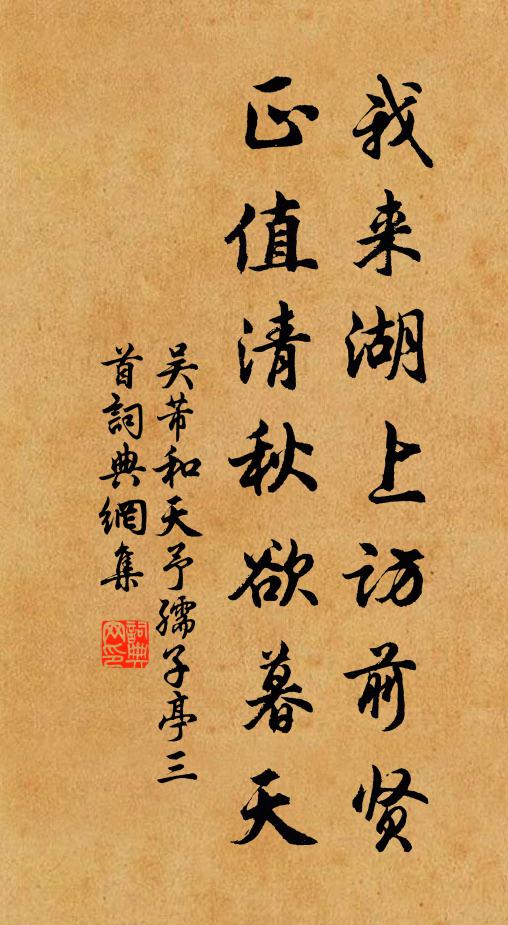 我来湖上访前贤
正值清秋欲暮天
吴芾和天予孺子亭三
首詞典網集
詞典网印